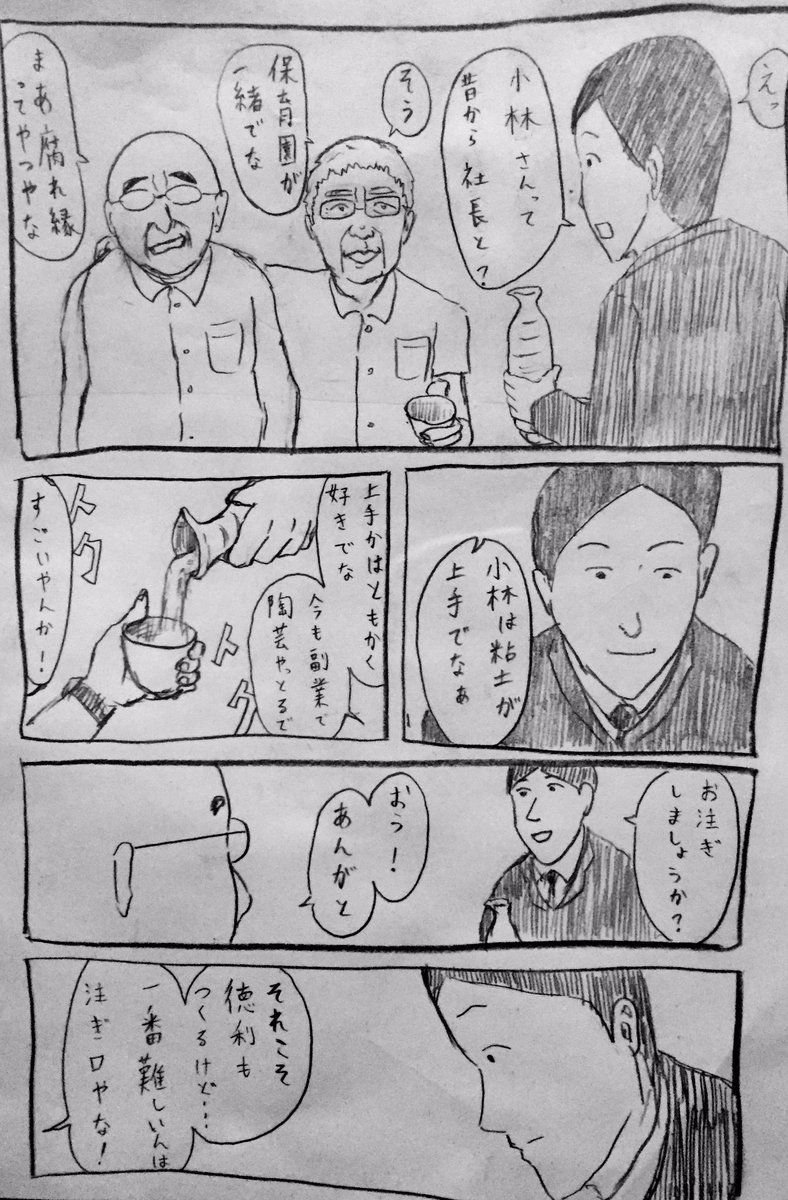 えっ
小林さんって
昔から社長と?
そう
保育園が
一緒でな
まあ腐れ縁
ってやつやな
小林は粘土が
上手でなぁ
上手かはともかく
好きでな
今も副業で
陶芸やっとるで
トク
トク
すごいやんか!
お注ぎ
しましょうか?
おう!
あんがと
それこそ
徳利も
つくるけど・・・
一番難しいんは
注ぎ口やな!